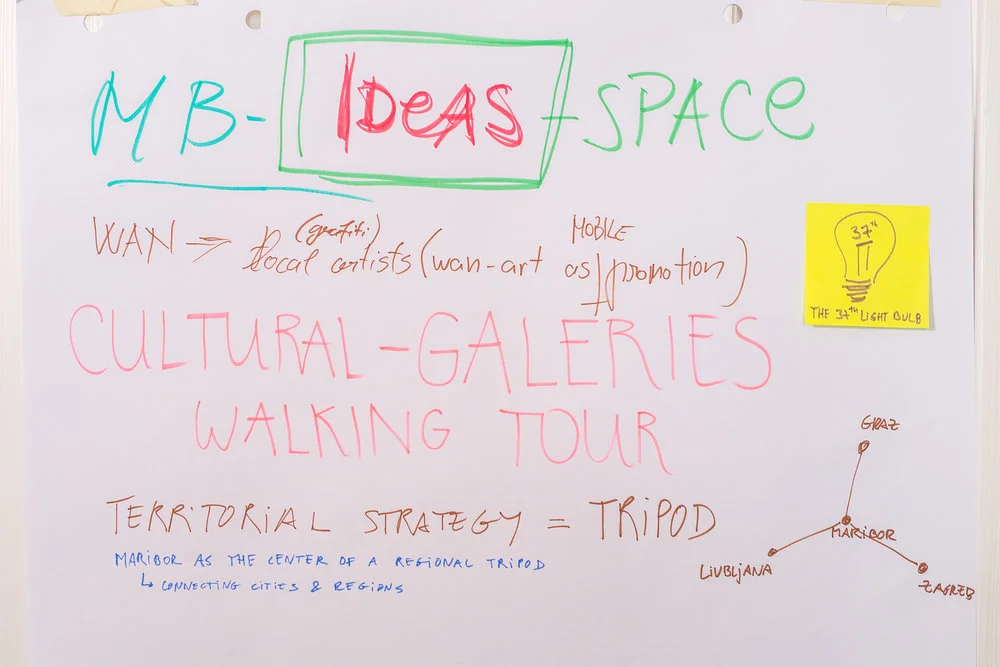 MB-IDEAS-SPACE
WAN → local artists (wan-art as promotion)
(grafiti)
MOBILE
37th
THE 37th LIGHT BULB
CULTURAL-GALERIES
WALKING TOUR
GRAZ
MARIBOR
LIUBLJANA
ZAGREB
TERRITORIAL STRATEGY = TRIPOD
MARIBOR AS THE CENTER OF A REGIONAL TRIPOD
↳ CONNECTING CITIES & REGIONS